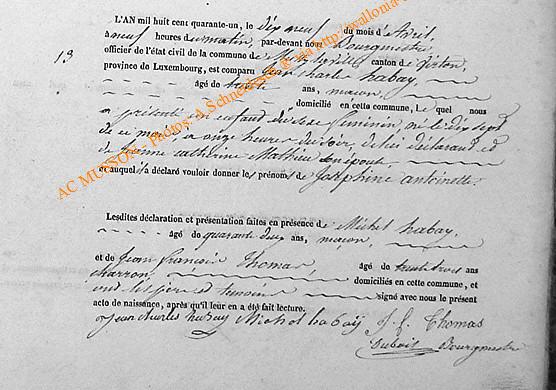 L'AN mil huit cent quarante-un, le dix neuf du mois d'Avril,
à neuf heures du matin, par-devant nous Bourgmestre
officier de l'état civil de la commune de canton de Virton,
13
province de Luxembourg, est comparu Jean Charles habay,
âgé de trente ans, maçon,
domicilié en cette commune, lequel nous
a présenté un enfant du sexe féminin, né le dix sept
de ce mois, à onze heures du soir, de lui déclarant et
de Jeanne Catherine Mathieu
et auquel a déclaré vouloir donner les prénoms de Joséphine antoinette.
Lesdites déclaration et présentation faites en présence de Michel habay,
âgé de quarante deux ans, maçon,
et de Jean françois Thomas, âgé de trente trois ans
charron, domiciliés en cette commune, et
ont les père et témoins signé avec nous le présent
acte de naissance, après qu'il leur en a été fait lecture.
Jean Charles habay Michel habaÿ J. f. Thomas
Dubois Bourgmestre
AC MUSSON - Photos: A Schneider @ http://wallonia